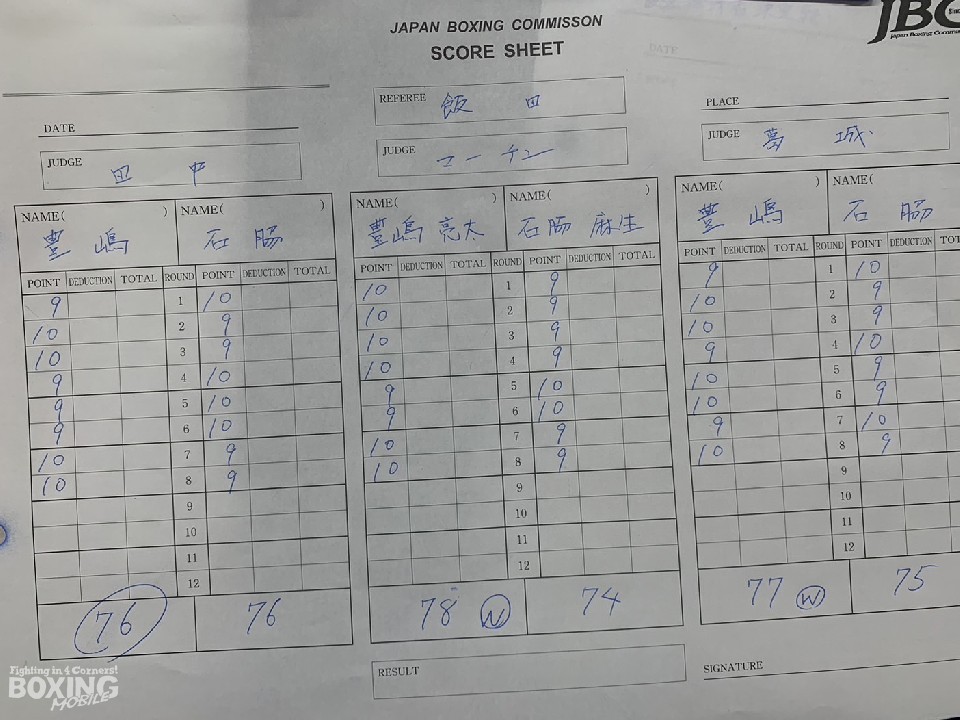 JAPAN BOXING COMMISSON
SCORE SHEET
JBC
Japan Boxing Commi
DATE
REFEREE 飯 田
PLACE
JUDGE 田 中
JUDGE マーチン
JUDGE 葛 城
NAME( ) NAME( )
豊 嶋 石 脇
POINT DEDUCTION TOTAL ROUND POINT DEDUCTION TOTAL
9 1 10
10 2 9
10 3 9
9 4 10
9 5 10
9 6 10
10 7 9
10 8 9
9
10
11
12
76 76
NAME( ) NAME( )
豊嶋 亮太 石脇 麻生
POINT DEDUCTION TOTAL ROUND POINT DEDUCTION TOTAL
10 1 9
10 2 9
10 3 9
10 4 9
9 5 10
9 6 10
10 7 9
10 8 9
9
10
11
12
78 W 74
NAME( ) NAME(
豊 嶋 石 脇
POINT DEDUCTION TOTAL ROUND POINT DEDUCTION TOT
9 1 10
10 2 9
10 3 9
9 4 10
10 5 9
10 6 9
9 7 10
10 8 9
9
10
11
12
77 W 75
RESULT
SIGNATURE
Fighting in 4 Corners!
BOXING
MOBILE